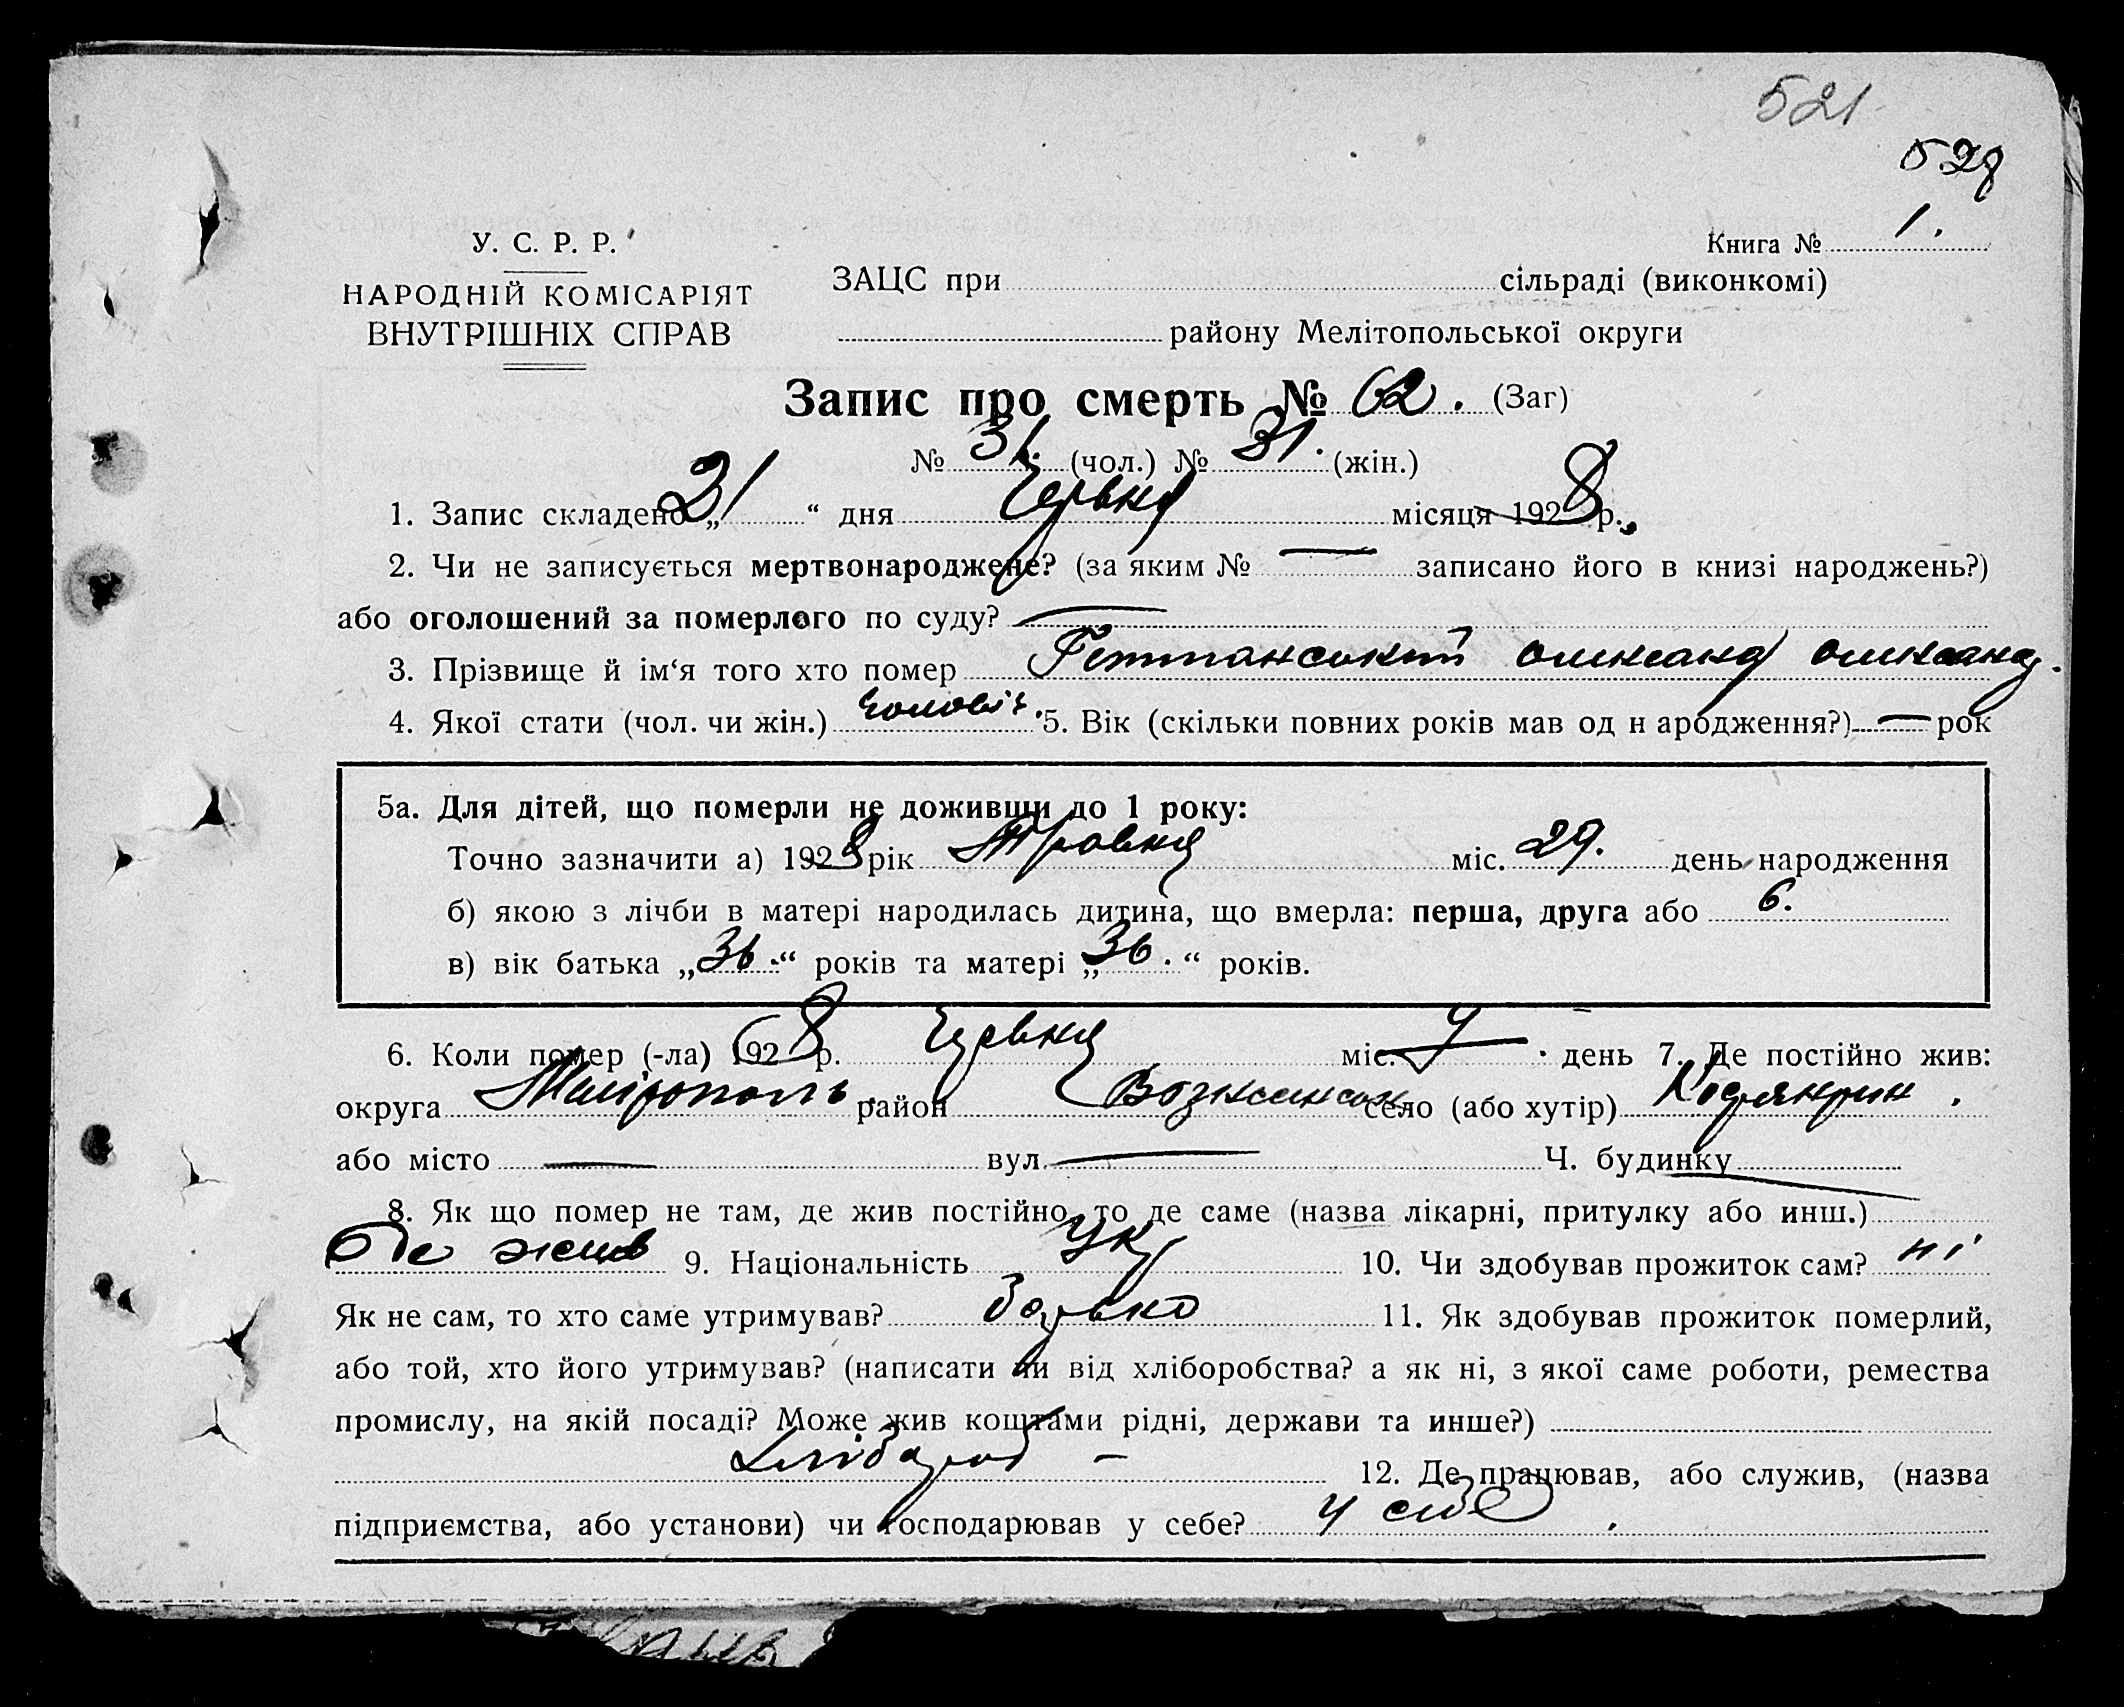 521
528
У. С. Р. Р.
Книга № 1.
НАРОДНІЙ КОМІСАРІЯТ
ВНУТРІШНІХ СПРАВ
ЗАЦС при сільраді (виконкомі)
району Мелітопольської округи
Запис про смерть № 62. (Заг)
№ 31. (чол.) № 31. (жін.)
1. Запис складено „21“ дня Червня місяця 1928 р.
2. Чи не записується мертвонароджене? (за яким № — записано його в книзі народжень?)
або оголошений за померлого по суду? —
3. Прізвище й ім‘я того хто помер Олександ Олександ.
4. Якої стати (чол. чи жін.) чоловіч. 5. Вік (скільки повних років мав од н ародження?) — рок
5а. Для дітей, що померли не доживши до 1 року:
Точно зазначити а) 1928 рік Травня міс. 29. день народження
б) якою з лічби в матері народилась дитина, що вмерла: перша, друга або 6.
в) вік батька „36.“ років та матері „36.“ років.
6. Коли помер (-ла) 1928 р. Червня міс. день 7. Де постійно жив:
округа район село (або хутір)
або місто — вул. — Ч. будинку —
8. Як що помер не там, де жив постійно, то де саме (назва лікарні, притулку або инш.)
де жив 9. Національність Укр 10. Чи здобував прожиток сам? ні
Як не сам, то хто саме утримував? батько 11. Як здобував прожиток померлий,
або той, хто його утримував? (написати чи від хліборобства? а як ні, з якої саме роботи, ремества
промислу, на якій посаді? Може жив коштами рідні, держави та инше?)
хлібороб — 12. Де працював, або служив, (назва
підприємства, або установи) чи господарював у себе? у себе